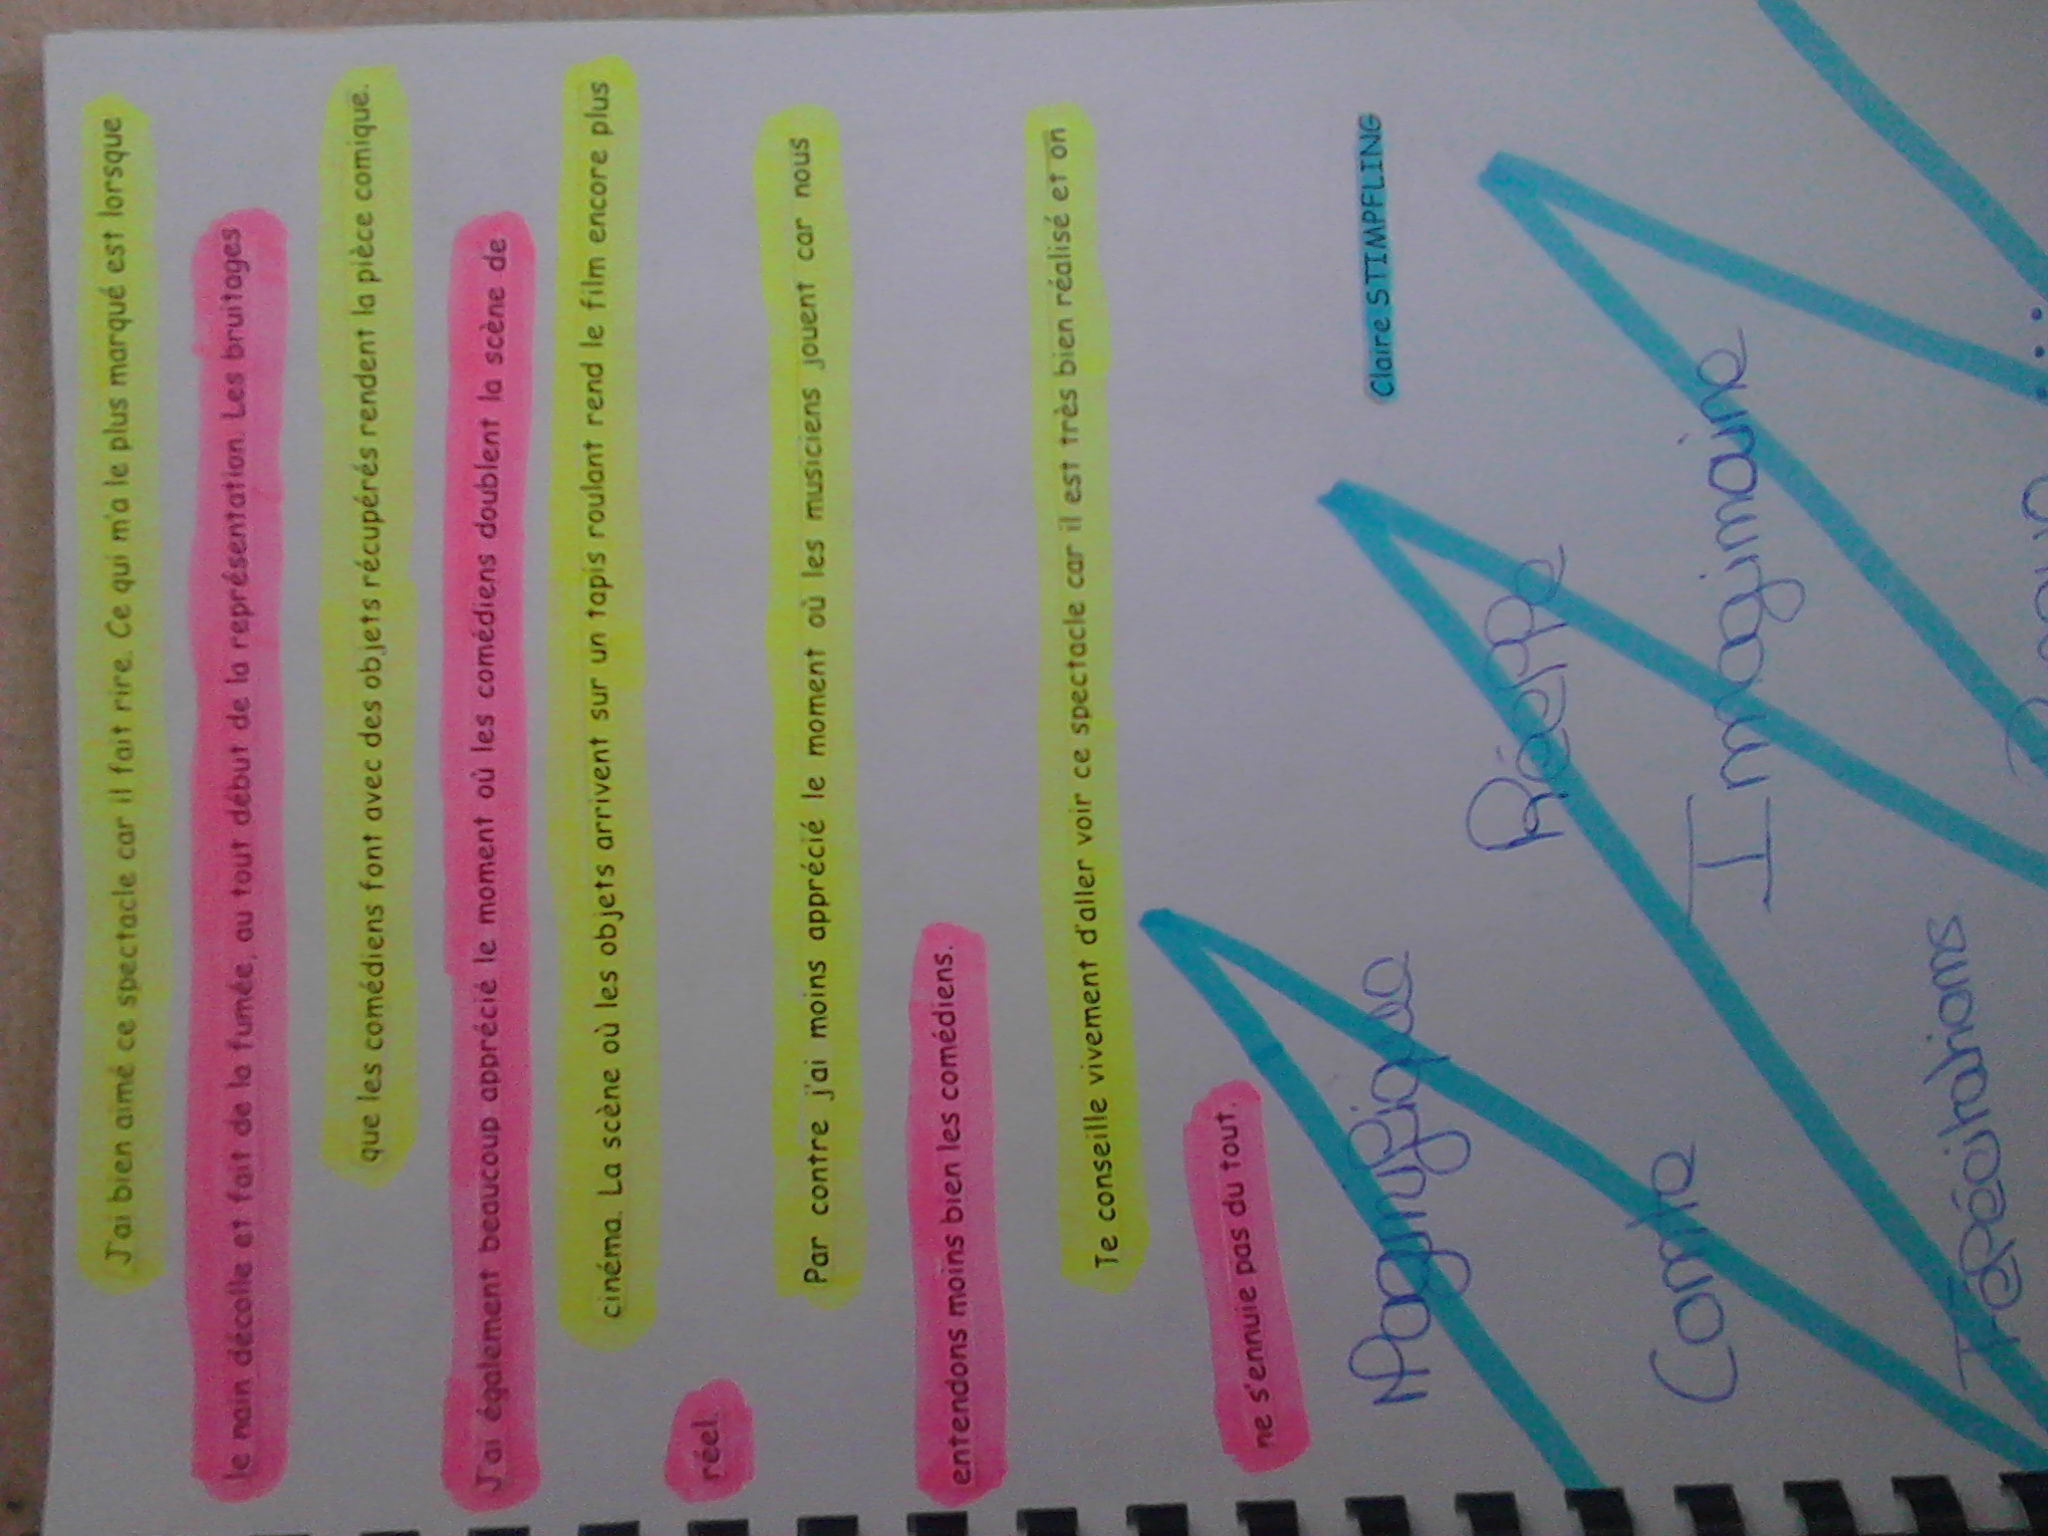 J'ai bien aimé ce spectacle car il fait rire. Ce qui m'a le plus marqué est lorsque
le nain décolle et fait de la fumée, au tout début de la représentation. Les bruitages
que les comédiens font avec des objets récupérés rendent la pièce comique.
J'ai également beaucoup apprécié le moment où les comédiens doublent la scène de
cinéma. La scène où les objets arrivent sur un tapis roulant rend le film encore plus
réel.
Par contre j'ai moins apprécié le moment où les musiciens jouent car nous
entendons moins bien les comédiens.
Te conseille vivement d'aller voir ce spectacle car il est très bien réalisé et on
ne s'ennuie pas du tout.
Claire STIMPFLING
Magnifique
Réelle
Conte
Imaginaire